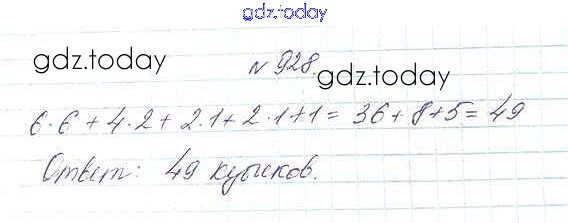 gdz.today
gdz.today
№928.
gdz.today
6·6 + 4·2 + 2·1 + 2·1 + 1 = 36 + 8 + 5 = 49
Ответ: 49 кусков.